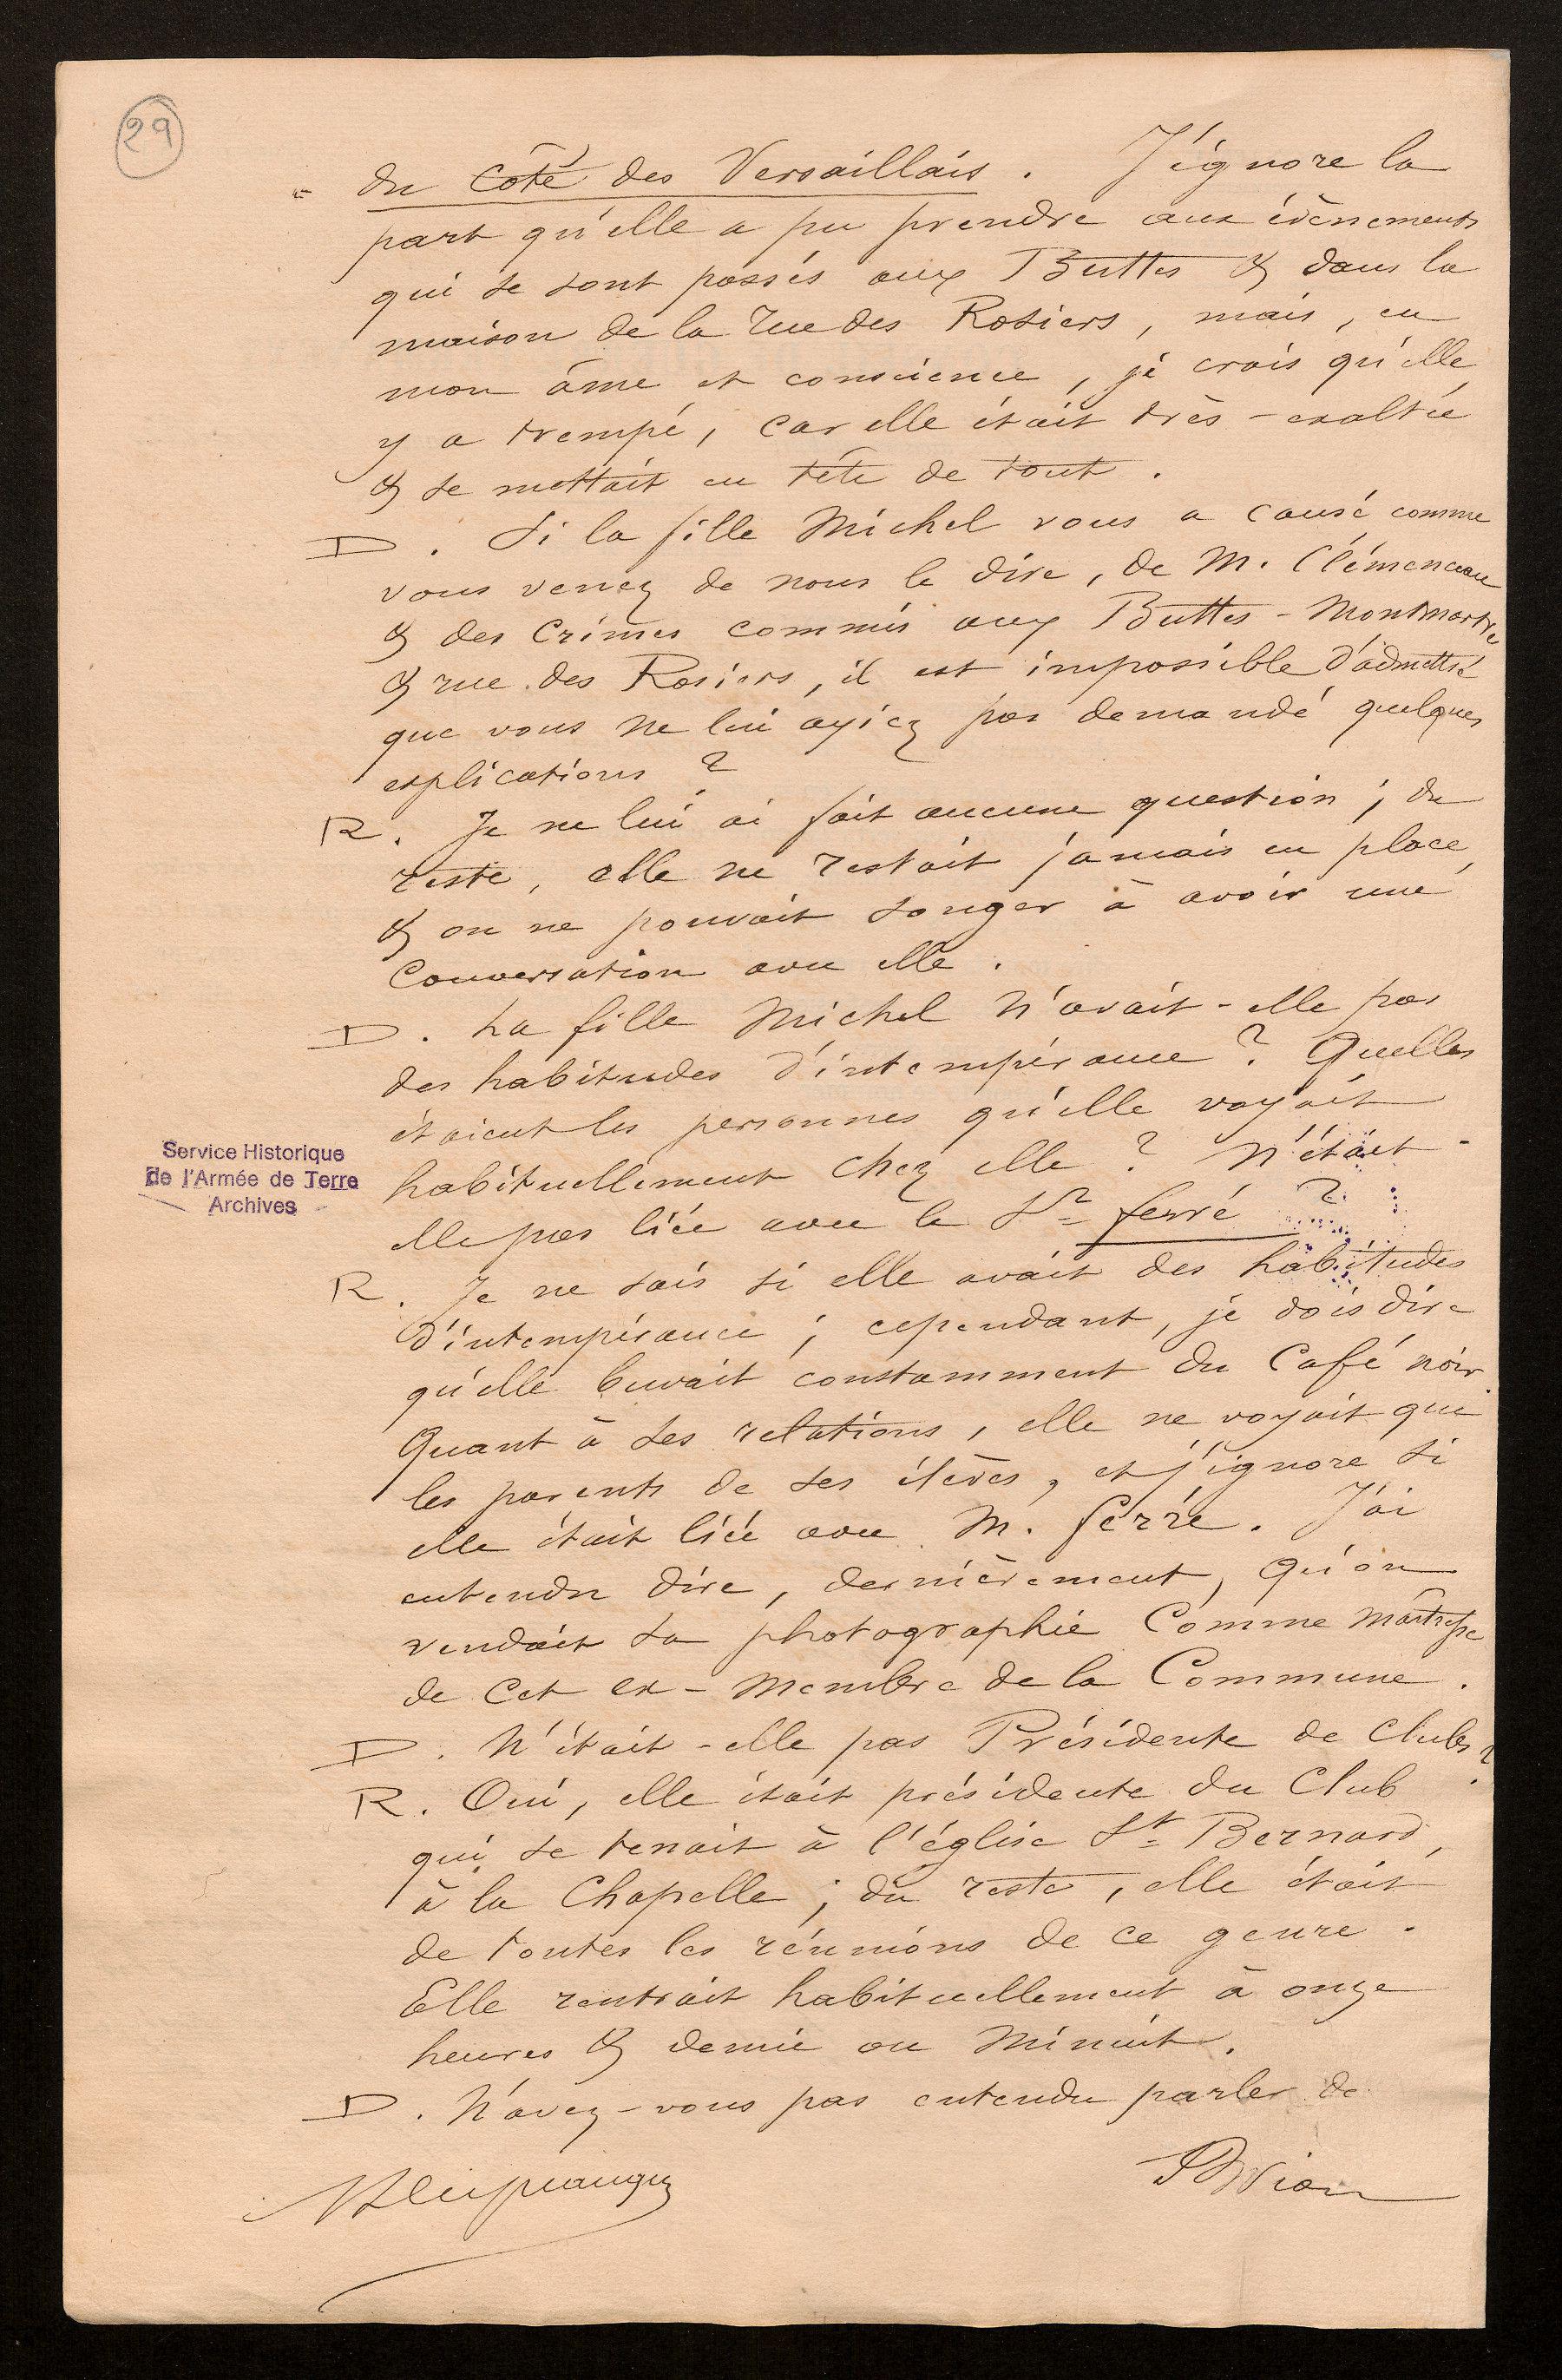 29
du côté des Versaillais. J'ignore la
part qu'elle a pu prendre aux évènements
qui se sont passés aux Buttes & dans la
maison de la rue des Rosiers, mais, en
mon âme et conscience, je crois qu'elle
y a trempé, car elle était très-exaltée
& se mettait en tête de tout.
D. Si la fille Michel vous a causé comme
vous venez de nous le dire, de M. Clémenceau
& des Crimes commis aux Buttes-Montmartre
& rue des Rosiers, il est impossible d'admettre
que vous ne lui ayiez pas demandé quelques
explications ?
R. Je ne lui ai fait aucune question ; du
reste, elle ne restait jamais en place,
& on ne pouvait songer à avoir une
Conversation avec elle.
D. La fille Michel n'avait-elle pas
des habitudes d'intempérance ? Quelles
étaient les personnes qu'elle voyait
habituellement chez elle ? N'était-
Service Historique
de l'Armée de Terre
Archives
elle pas liée avec le Sr ferré ?
R. Je ne sais si elle avait des habitudes
d'intempérance ; cependant, je dois dire
qu'elle buvait constamment du Café noir.
Quant à ses relations, elle ne voyait que
les parents de ses élèves, et j'ignore si
elle était liée avec M. ferré. J'ai
entendu dire, dernièrement, qu'on
vendait sa photographie Comme maîtresse
de Cet ex-Membre de la Commune.
D. N'était-elle pas Présidente de Clubs ?
R. Oui, elle était présidente du Club
qui se tenait à l'église St Bernard,
à la Chapelle ; du reste, elle était
de toutes les réunions de ce genre.
Elle rentrait habituellement à onze
heures & demie ou Minuit.
D. N'avez-vous pas entendu parler de